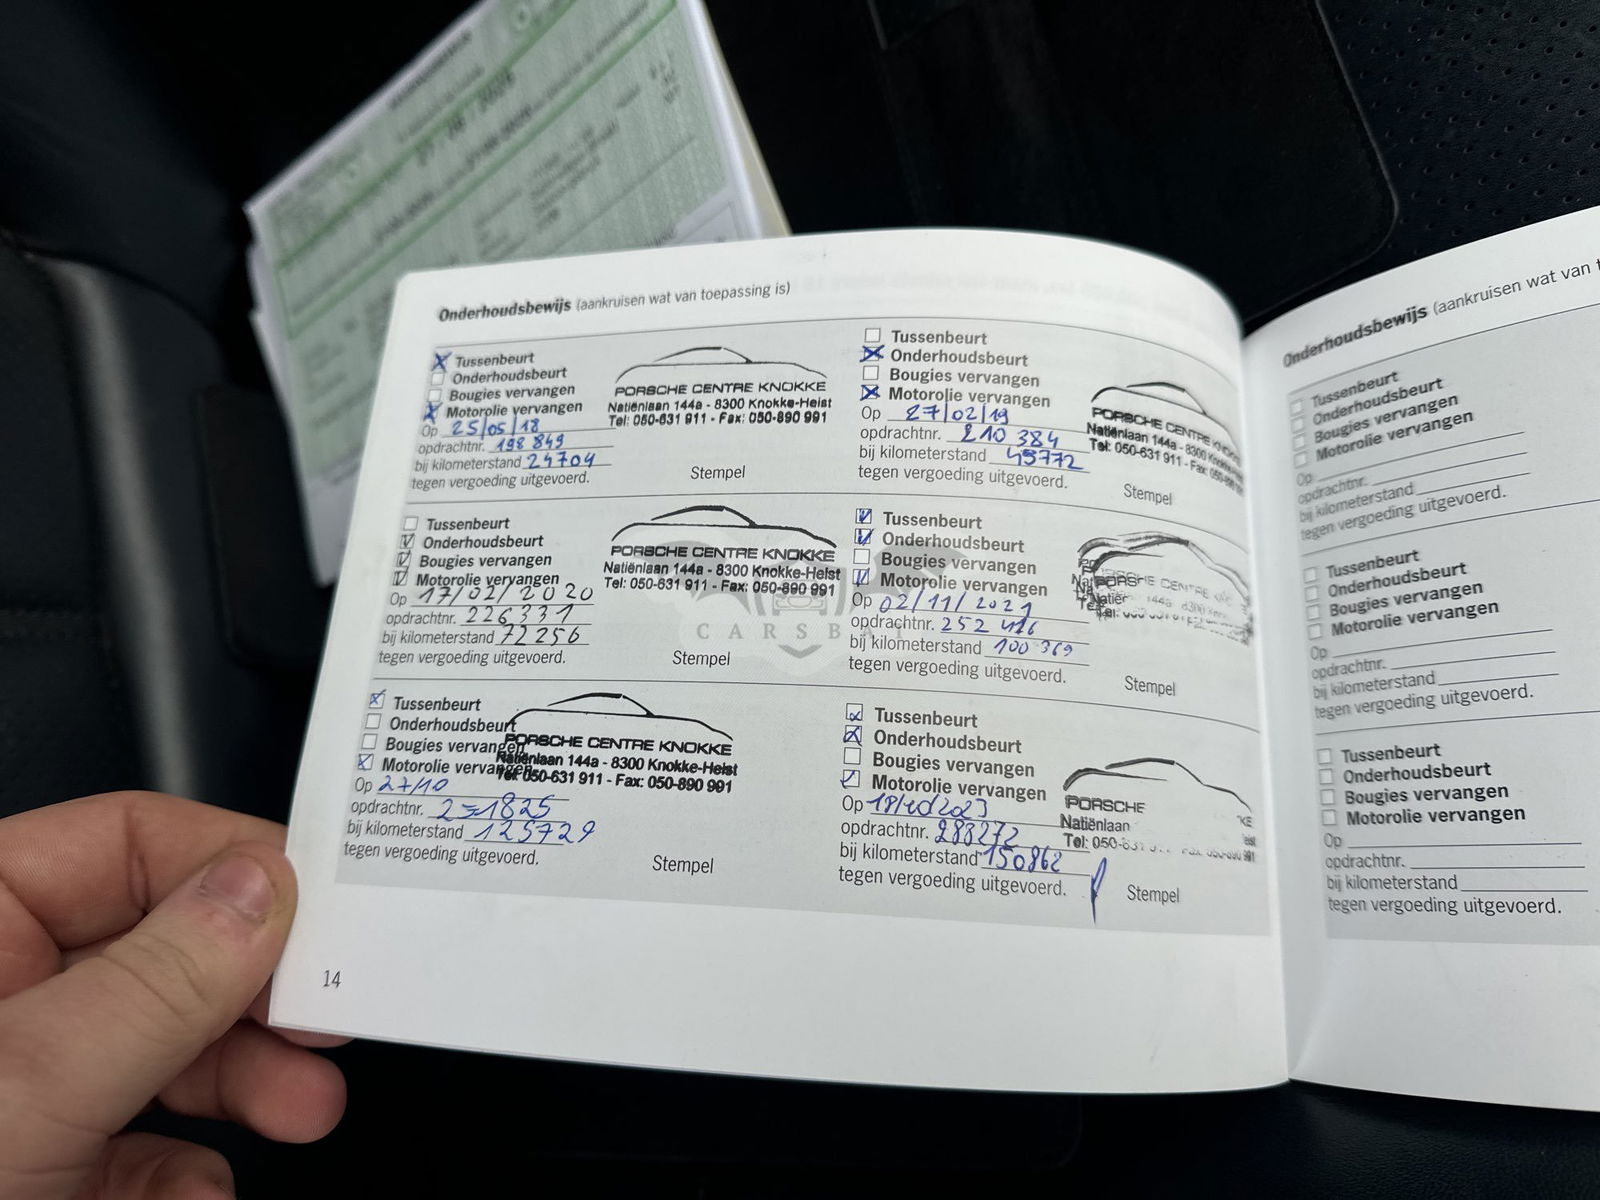 Onderhoudsbewijs (aankruisen wat van toepassing is)
Tussenbeurt
Onderhoudsbeurt
Bougies vervangen
Motorolie vervangen
Op 25/05/18
opdrachtnr. 198 849
bij kilometerstand 24704
tegen vergoeding uitgevoerd.
PORSCHE CENTRE KNOKKE
Natiënlaan 144a - 8300 Knokke-Heist
Tel: 050-631 911 - Fax: 050-890 991
Stempel
Tussenbeurt
Onderhoudsbeurt
Bougies vervangen
Motorolie vervangen
Op 27/02/19
opdrachtnr. 210 384
bij kilometerstand 45772
tegen vergoeding uitgevoerd.
PORSCHE CENTRE KNOKKE
Natiënlaan 144a - 8300 Knokke
Tel: 050-631 911 - Fax: 050-890
Stempel
Tussenbeurt
Onderhoudsbeurt
Bougies vervangen
Motorolie vervangen
Op 17/02/2020
opdrachtnr. 226331
bij kilometerstand 72256
tegen vergoeding uitgevoerd.
PORSCHE CENTRE KNOKKE
Natiënlaan 144a - 8300 Knokke-Heist
Tel: 050-631 911 - Fax: 050-890 991
Stempel
CARSBAT
Tussenbeurt
Onderhoudsbeurt
Bougies vervangen
Motorolie vervangen
Op 02/11/2021
opdrachtnr. 252 416
bij kilometerstand 100 369
tegen vergoeding uitgevoerd.
PORSCHE CENTRE
Stempel
Tussenbeurt
Onderhoudsbeurt
Bougies vervangen
Motorolie vervangen
Op 27/10
opdrachtnr.
bij kilometerstand 125729
tegen vergoeding uitgevoerd.
PORSCHE CENTRE KNOKKE
Natiënlaan 144a - 8300 Knokke-Heist
Tel: 050-631 911 - Fax: 050-890 991
Stempel
Tussenbeurt
Onderhoudsbeurt
Bougies vervangen
Motorolie vervangen
Op 18/10/2023
opdrachtnr. 283272
bij kilometerstand 150862
tegen vergoeding uitgevoerd.
PORSCHE
Natiënlaan
Tel: 050-631
Stempel
14
Onderhoudsbewijs (aankruisen wat van
Tussenbeurt
Onderhoudsbeurt
Bougies vervangen
Motorolie vervangen
Op
opdrachtnr.
bij kilometerstand
tegen vergoeding uitgevoerd.
Tussenbeurt
Onderhoudsbeurt
Bougies vervangen
Motorolie vervangen
Op
opdrachtnr.
bij kilometerstand
tegen vergoeding uitgevoerd.
Tussenbeurt
Onderhoudsbeurt
Bougies vervangen
Motorolie vervangen
Op
opdrachtnr.
bij kilometerstand
tegen vergoeding uitgevoerd.